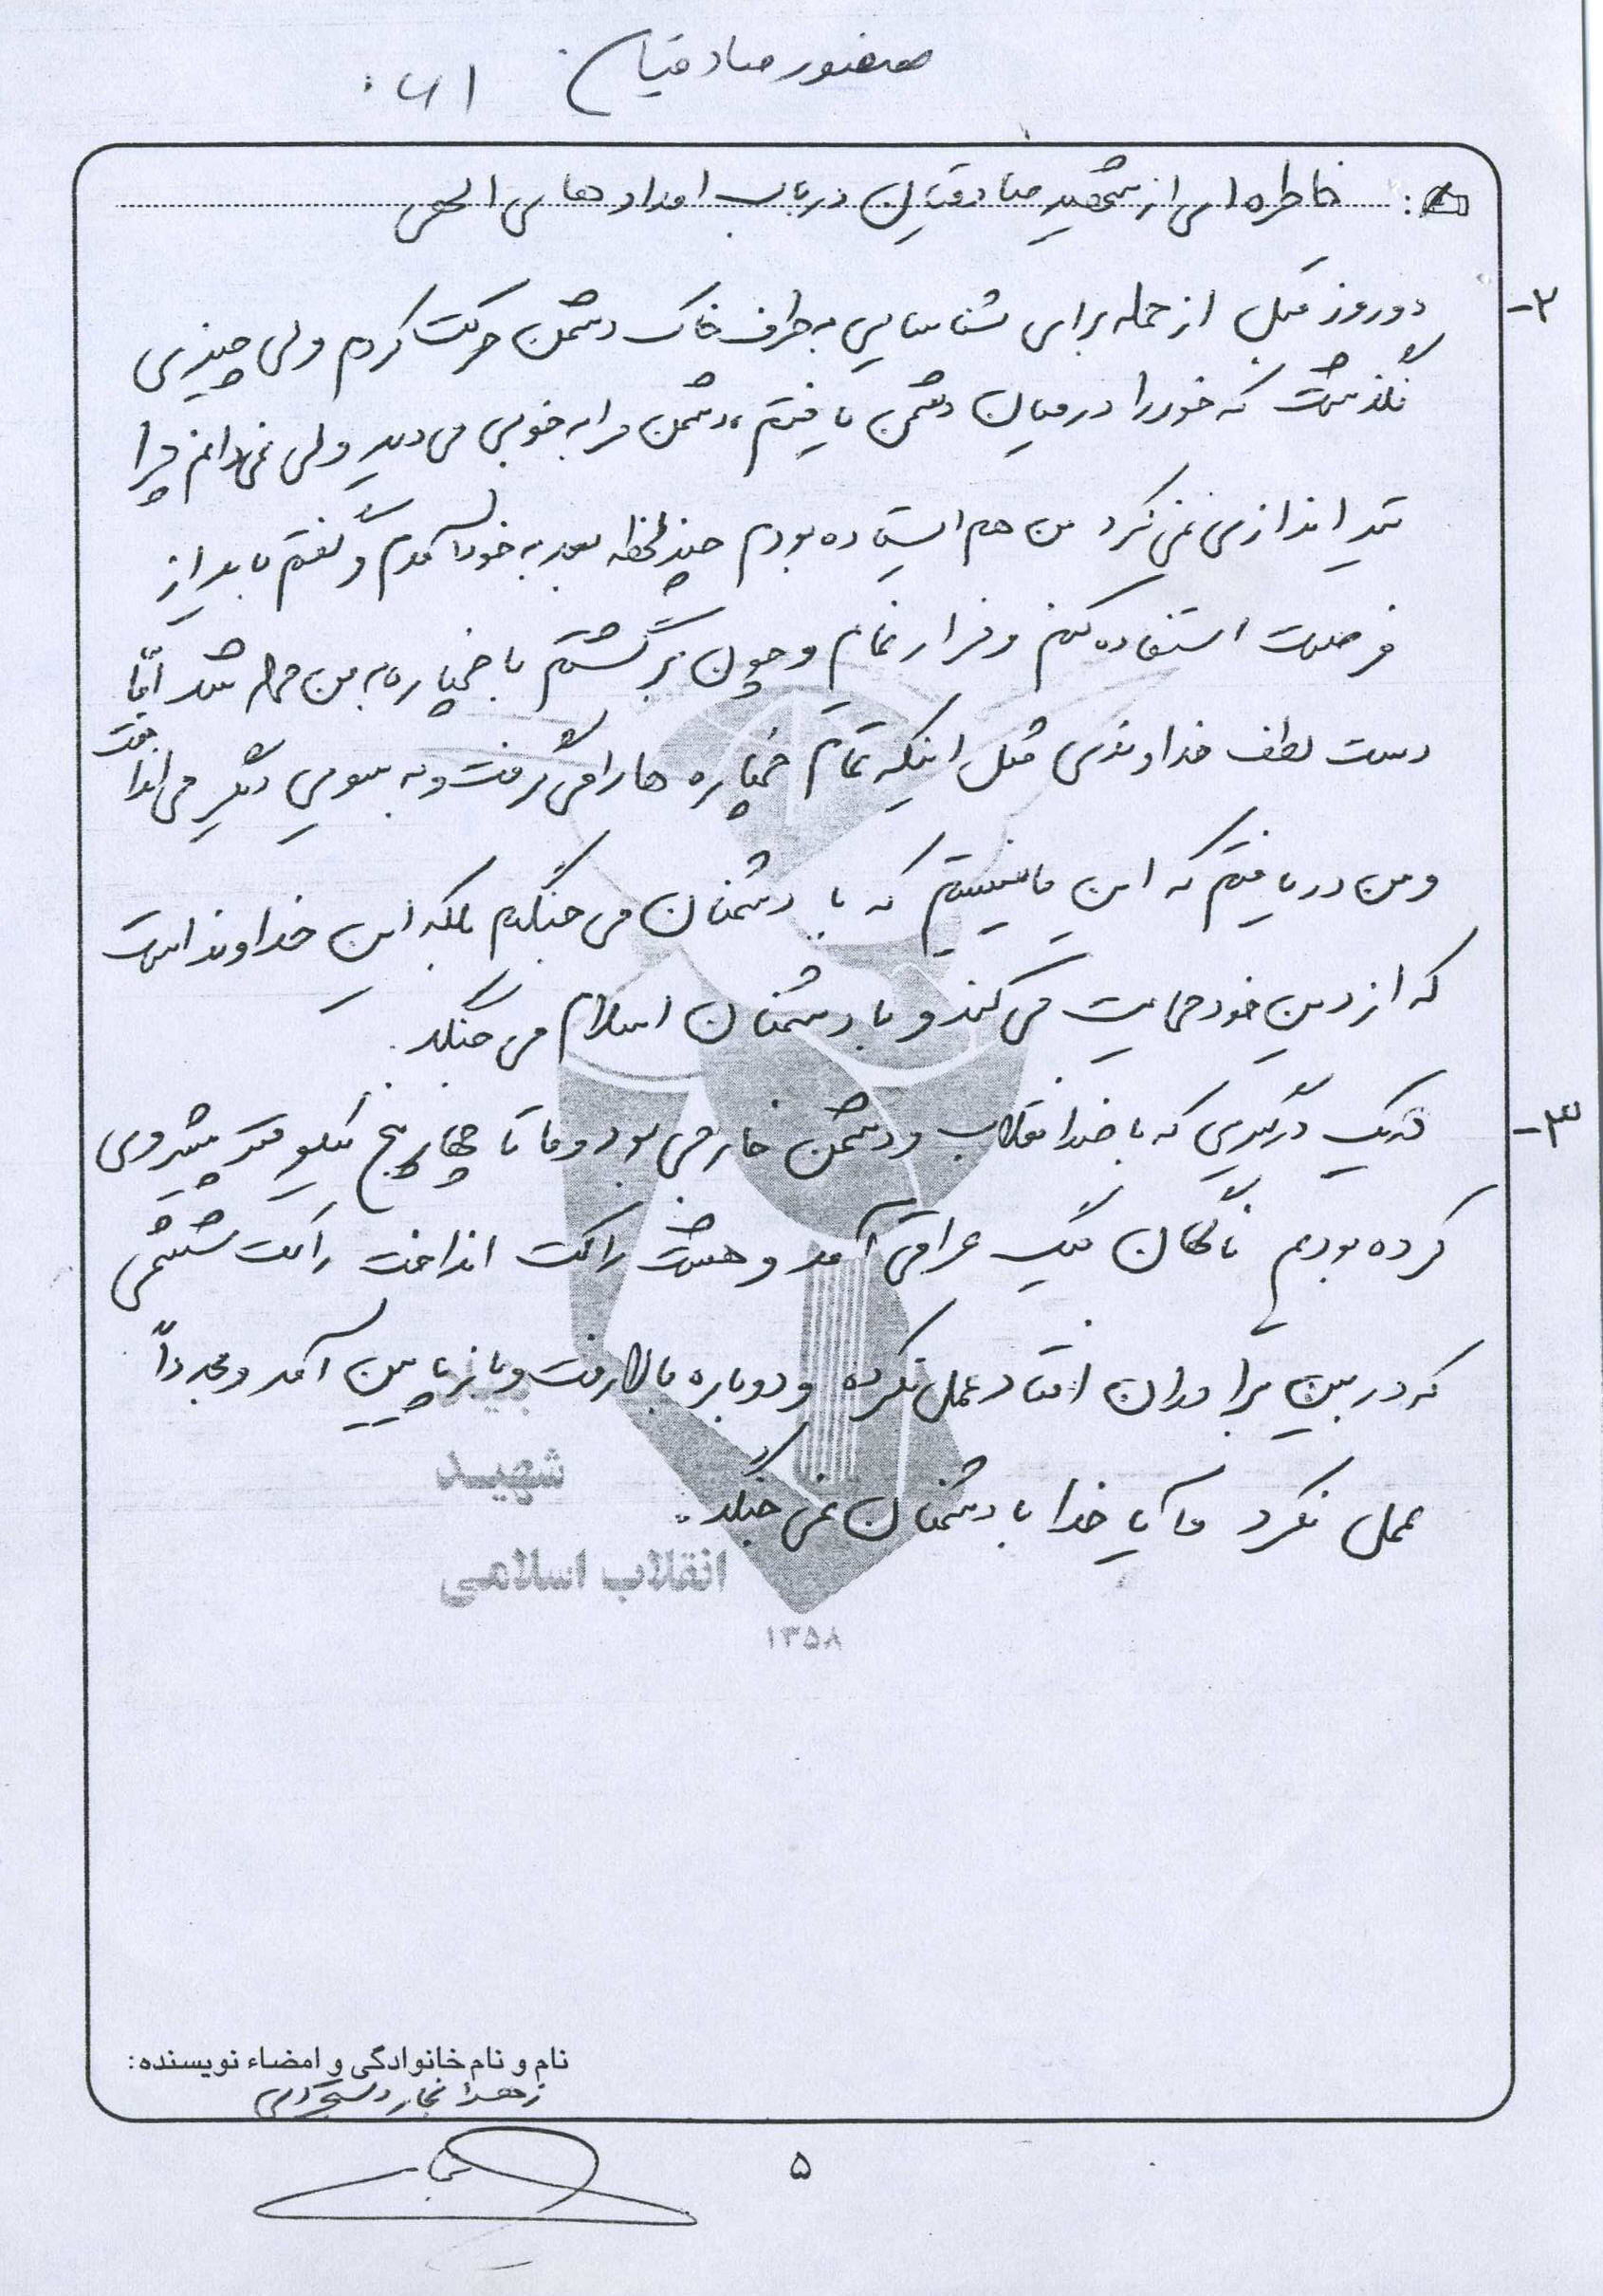 صفدر صادقیان ۰۶۱
خاطره ای از شهید صادقیان در باب امدادهای الهی
۲- دو روز قبل از حمله برای شناسایی به طرف خاک دشمن حرکت کردم ولی چیزی
نگذشت که خود را در میان دشمن یافتم، دشمن مرا به خوبی می دید ولی نمی دانم چرا
تیراندازی نمی کرد من هم ایستاده بودم چند لحظه بعد به خود آمدم و گفتم باید از
فرصت استفاده کنم و فرار نمایم و چون برگشتم با خمپاره به من حمله شد امّا
دست لطف خداوندی مثل اینکه تمام خمپاره ها را می گرفت و به سویی دیگر می انداخت
و من دریافتم که این ما نیستیم که با دشمنان می جنگیم بلکه این خداوند است
که از دین خود حمایت می کند و با دشمنان اسلام می جنگد.
۳- در یک درگیری که با ضد انقلاب و دشمن خارجی بود و ما تا چهار پنج کیلومتر پیشروی
کرده بودیم ناگهان میگ عراقی آمد و هشت راکت انداخت راکت ششمی
که در بین برادران افتاد عمل نکرده و دوباره بالا رفت و باز پایین آمد و مجدداً
عمل نکرد آیا خدا با دشمنان نمی جنگد.
شهید
انقلاب اسلامی
۱۳۵۸
نام و نام خانوادگی و امضاء نویسنده:
زهرا نجار
۵